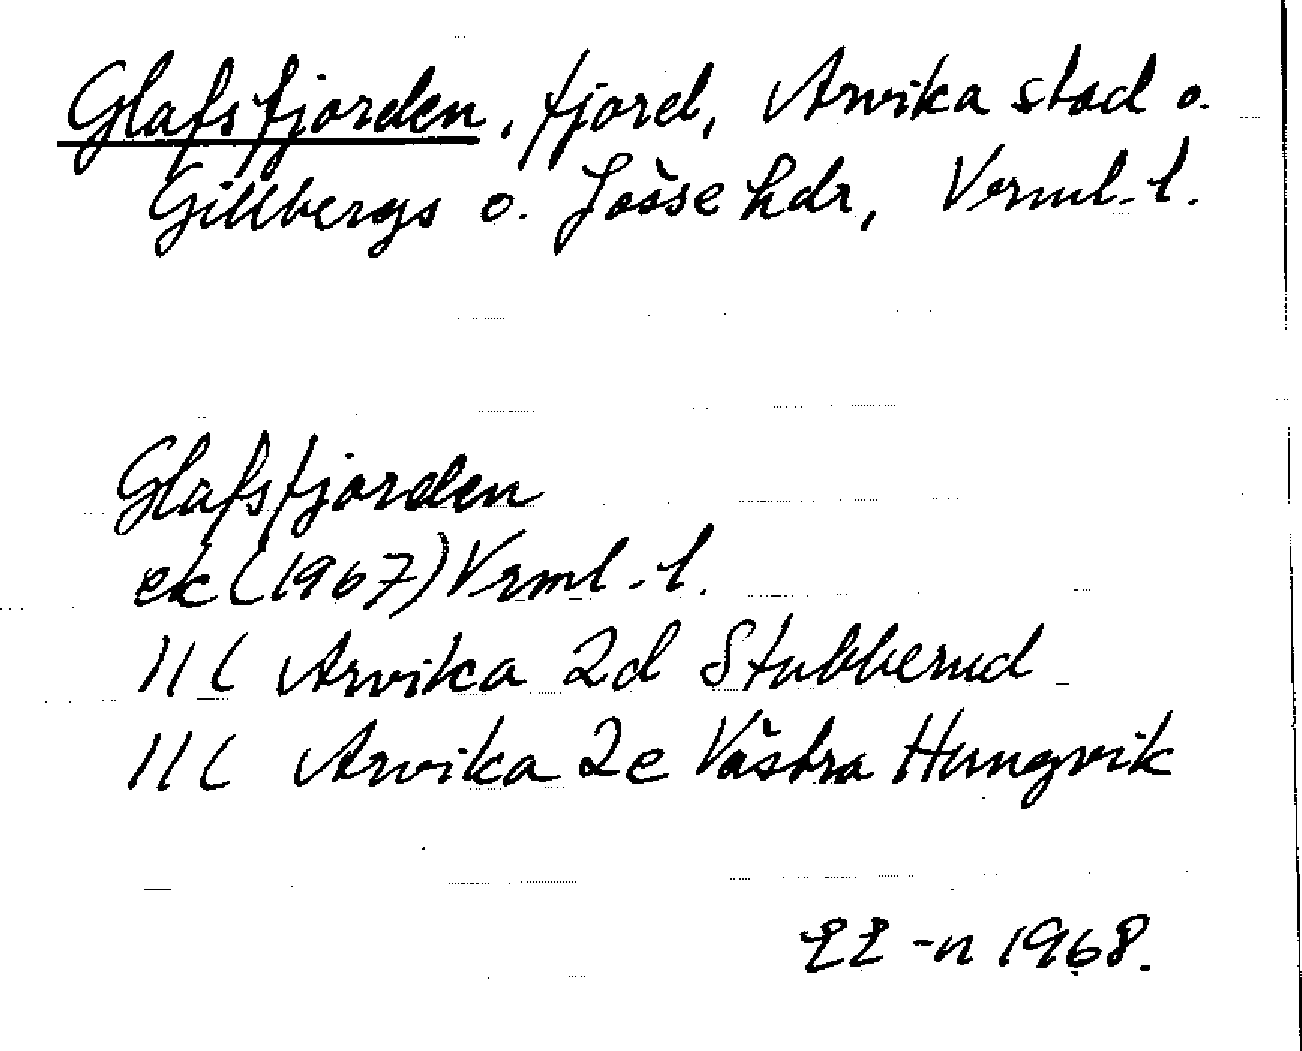 Glafsfjorden, fjord, Arvika stad o.
Gillbergs o. Jösse hdr, Vrml. l.
Glafsfjorden
ek (1967) Vrml. l.
11C Arvika 2d Stubberud
11C Arvika 2e Västra Hungvik
EE-n 1968.